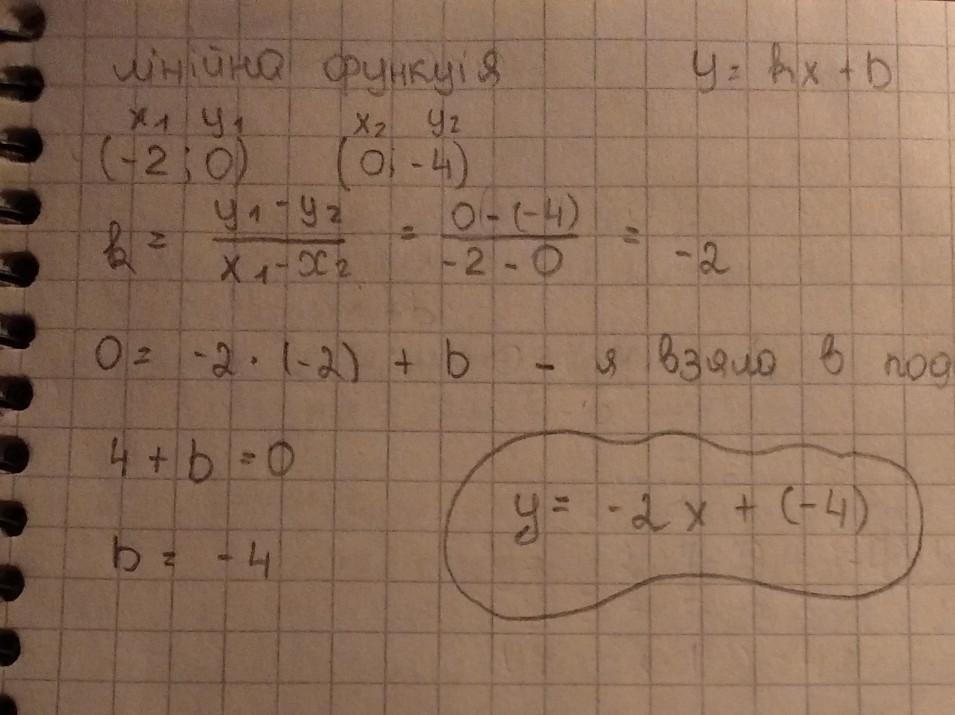 лінійна функція y = kx + b
x₁ y₁ x₂ y₂
(-2; 0) (0; -4)
k = (y₁ - y₂)/(x₁ - x₂) = (0 - (-4))/(-2 - 0) = -2
0 = -2 · (-2) + b - я взяла в
4 + b = 0
y = -2x + (-4)
b = -4